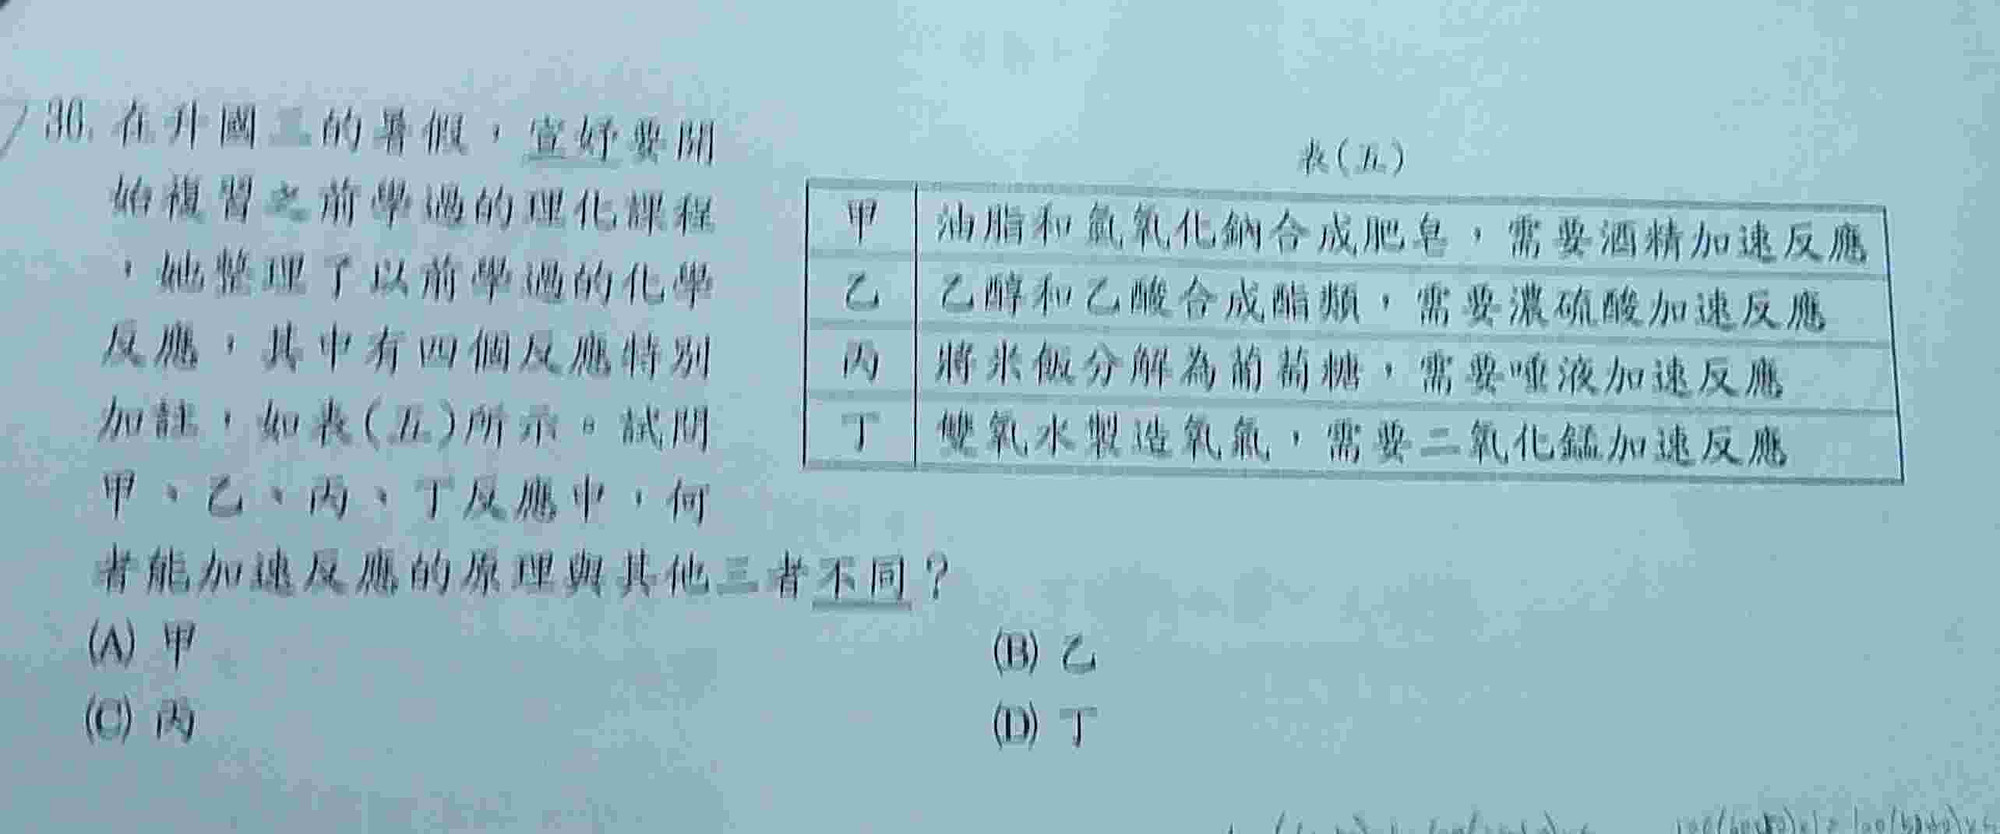 30. 在升國三的暑假，宣妤要開
始複習之前學過的理化課程
，她整理了以前學過的化學
反應，其中有四個反應特別
加註，如表(五)所示。試問
甲、乙、丙、丁反應中，何
者能加速反應的原理與其他三者不同？
表(五)
甲 油脂和氫氧化鈉合成肥皂，需要酒精加速反應
乙 乙醇和乙酸合成酯類，需要濃硫酸加速反應
丙 將米飯分解為葡萄糖，需要唾液加速反應
丁 雙氧水製造氧氣，需要二氧化錳加速反應
(A) 甲
(B) 乙
(C) 丙
(D) 丁